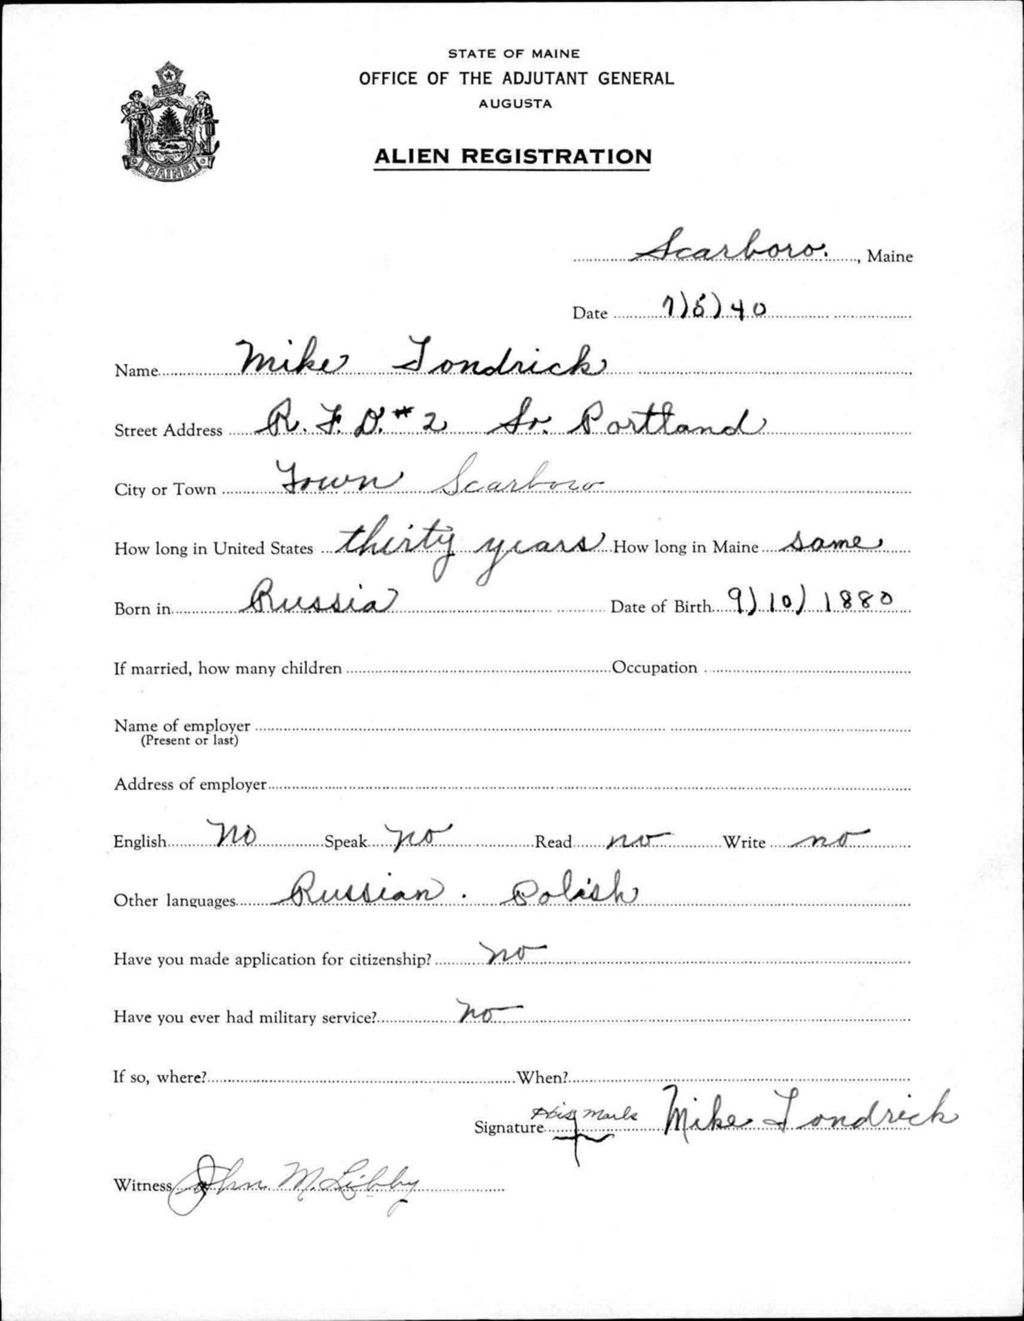 STATE OF MAINE
OFFICE OF THE ADJUTANT GENERAL
AUGUSTA
ALIEN REGISTRATION
MAINE
Scarboro, Maine
Date 7/5/40
Name Mike Tondrick
Street Address R.F.D. #2 So. Portland
City or Town Town Scarboro
How long in United States thirty years How long in Maine same
Born in Russia Date of Birth 9/10/1880
If married, how many children Occupation
Name of employer
(Present or last)
Address of employer
English No Speak no Read no Write no
Other languages Russian. Polish
Have you made application for citizenship? no
Have you ever had military service? no
If so, where? When?
Signature His Mark Mike Tondrick
Witness John M. Libby